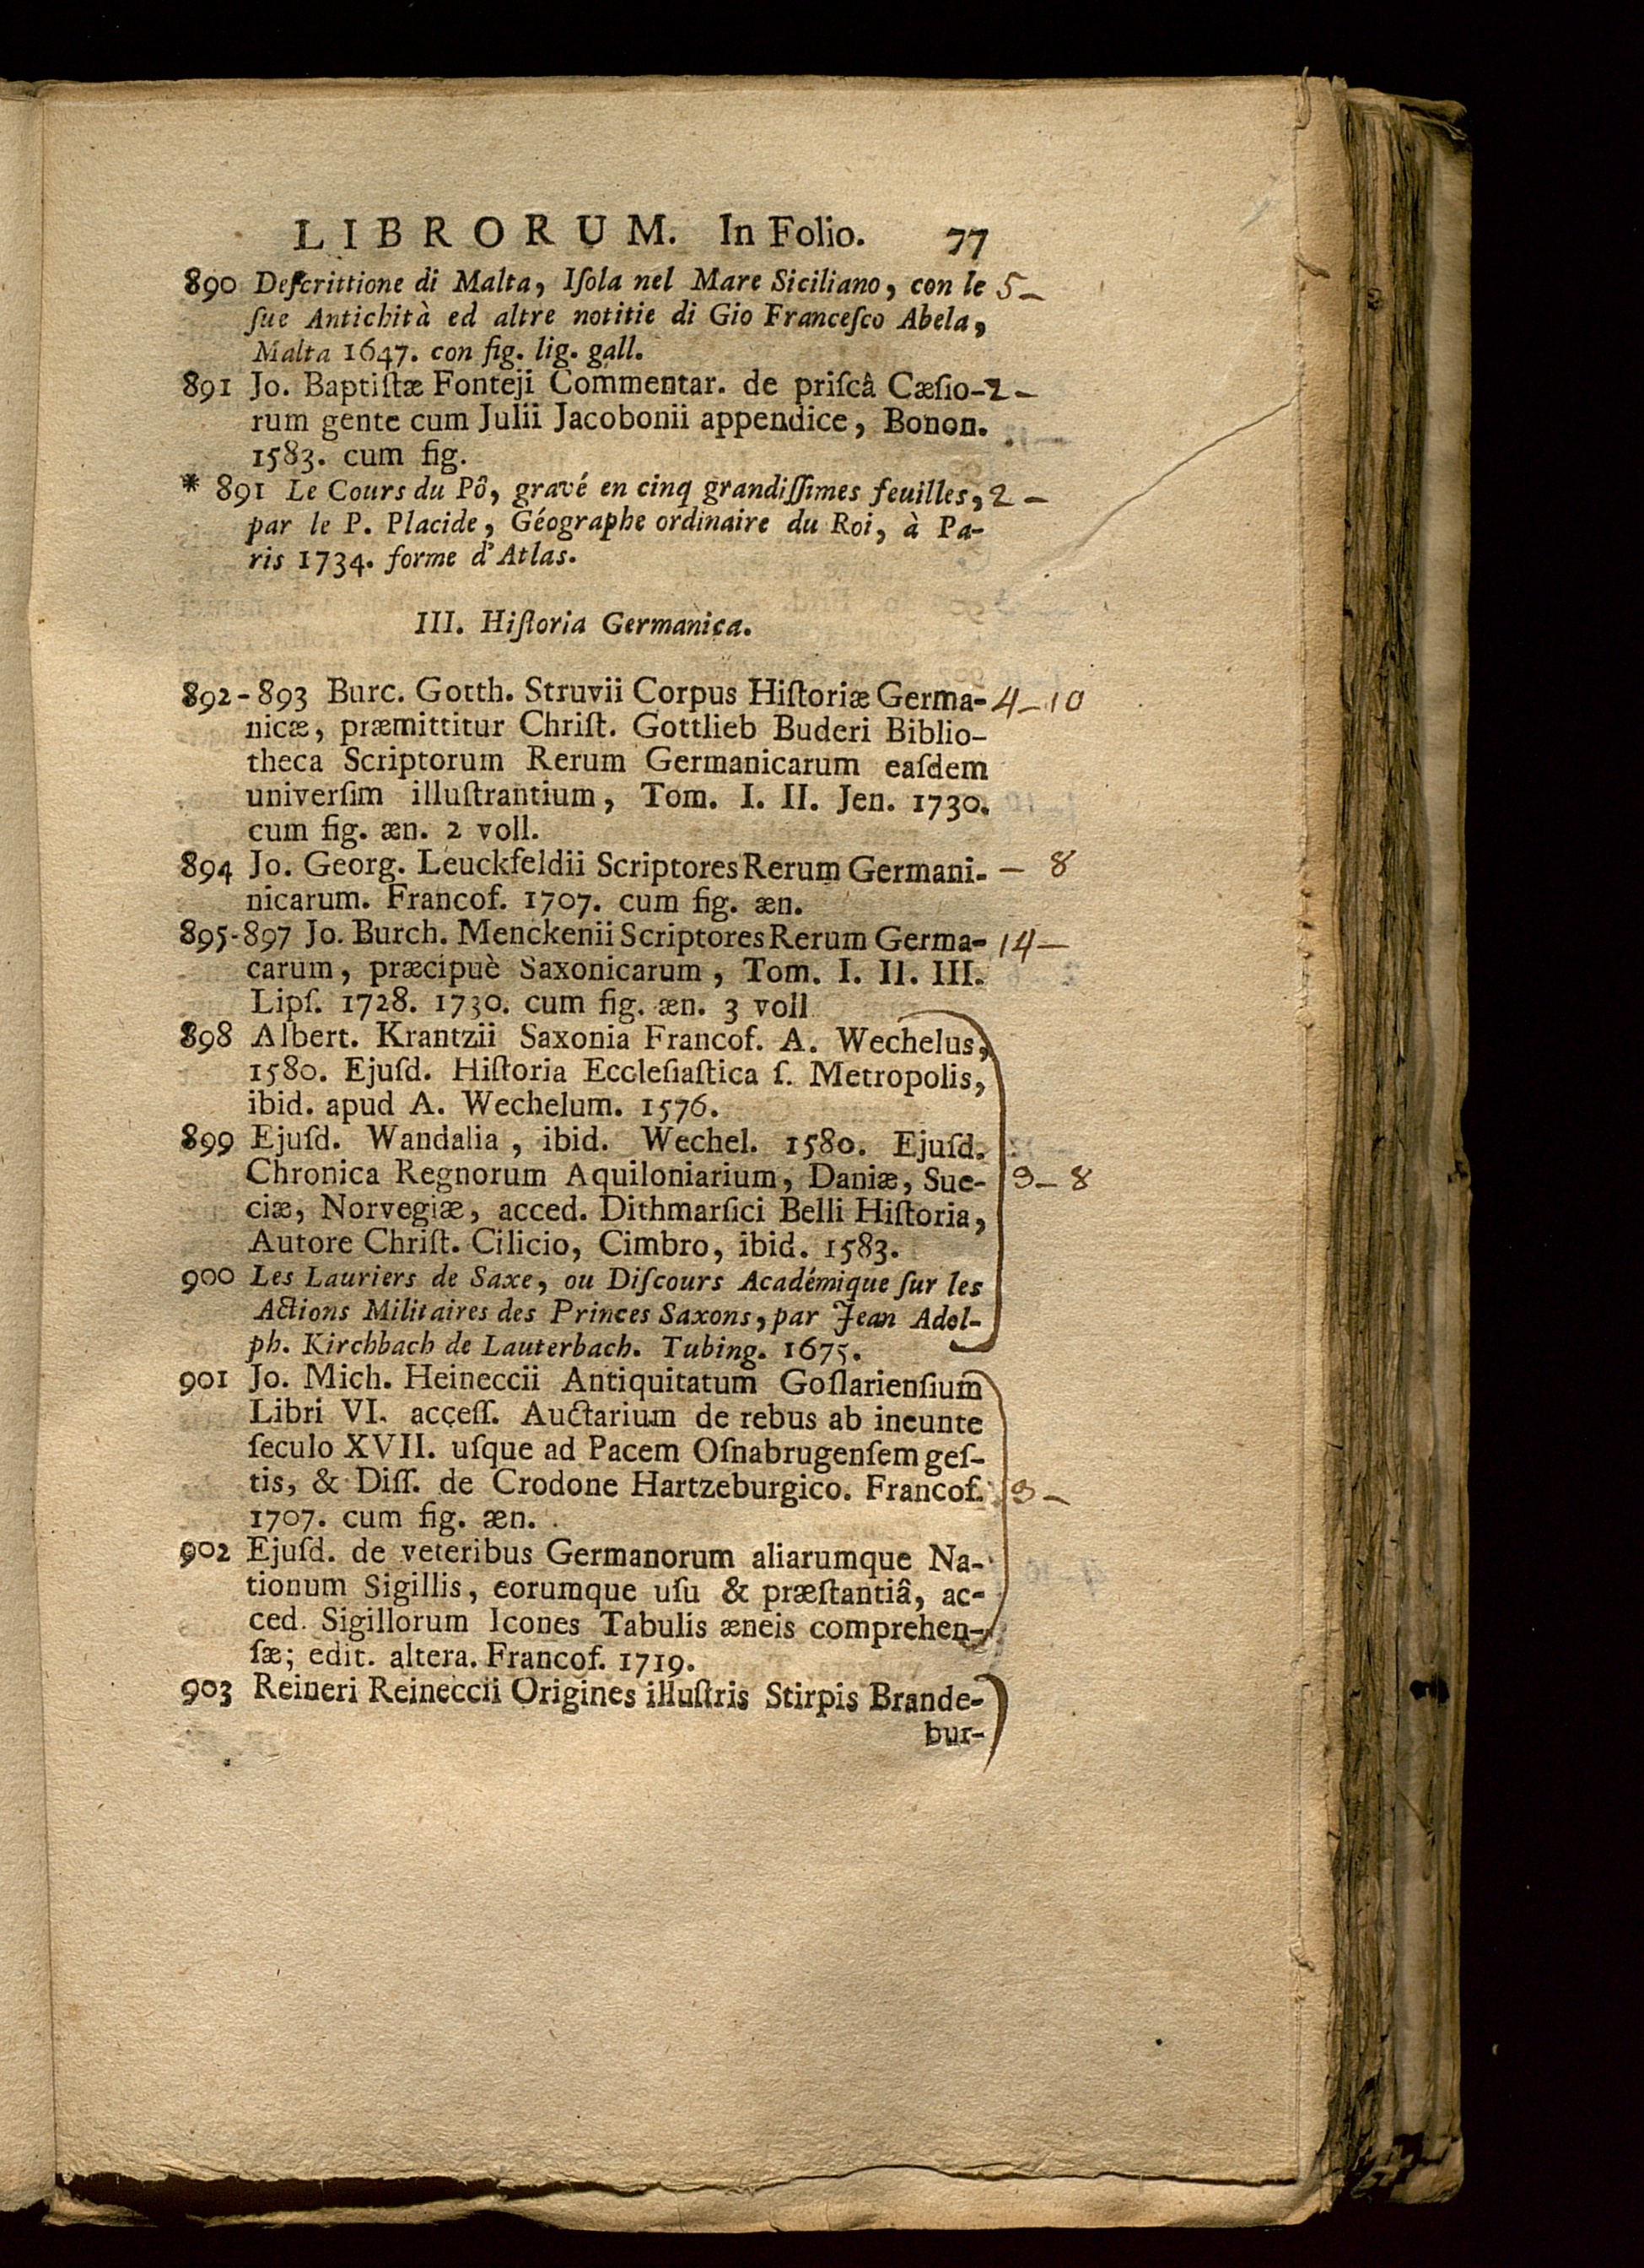 LIBRORUM. In Folio. 77
890 Deſcrittione di Malta, Iſola nel Mare Siciliano, con le 5 –
ſue Antichità ed altre notitie di Gio Franceſco Abela,
Malta 1647. con fig. lig. gall.
891 Jo. Baptiſtæ Fonteji Commentar. de priſcâ Cæſio- 2 –
rum gente cum Julii Jacobonii appendice, Bonon.
1583. cum fig.
* 891 Le Cours du Pô, gravé en cinq grandiſſimes feuilles, 2 –
par le P. Placide, Géographe ordinaire du Roi, à Pa-
ris 1734. forme d'Atlas.
III. Hiſtoria Germanica.
892-893 Burc. Gotth. Struvii Corpus Hiſtoriæ Germa- 4 – 10
nicæ, præmittitur Chriſt. Gottlieb Buderi Biblio-
theca Scriptorum Rerum Germanicarum eaſdem
univerſim illuſtrantium, Tom. I. II. Jen. 1730.
cum fig. æn. 2 voll.
894 Jo. Georg. Leuckfeldii Scriptores Rerum Germani- – 8
nicarum. Francof. 1707. cum fig. æn.
895-897 Jo. Burch. Menckenii Scriptores Rerum Germa- 14 –
carum, præcipuè Saxonicarum, Tom. I. II. III.
Lipſ. 1728. 1730. cum fig. æn. 3 voll
898 Albert. Krantzii Saxonia Francof. A. Wechelus,
1580. Ejuſd. Hiſtoria Eccleſiaſtica ſ. Metropolis,
ibid. apud A. Wechelum. 1576.
899 Ejuſd. Wandalia, ibid. Wechel. 1580. Ejuſd.
Chronica Regnorum Aquiloniarium, Daniæ, Sue- 3 – 8
ciæ, Norvegiæ, acced. Dithmarſici Belli Hiſtoria,
Autore Chriſt. Cilicio, Cimbro, ibid. 1583.
900 Les Lauriers de Saxe, ou Diſcours Académique ſur les
Actions Militaires des Princes Saxons, par Jean Adol-
ph. Kirchbach de Lauterbach. Tubing. 1675.
901 Jo. Mich. Heineccii Antiquitatum Goſlarienſium
Libri VI. acceſſ. Auctarium de rebus ab ineunte
ſeculo XVII. uſque ad Pacem Oſnabrugenſem geſ-
tis, & Diſſ. de Crodone Hartzeburgico. Francof. 3 –
1707. cum fig. æn.
902 Ejuſd. de veteribus Germanorum aliarumque Na-
tionum Sigillis, eorumque uſu & præſtantiâ, ac-
ced. Sigillorum Icones Tabulis æneis comprehen-
ſæ; edit. altera. Francof. 1719.
903 Reineri Reineccii Origines illuſtris Stirpis Brande-
bur-